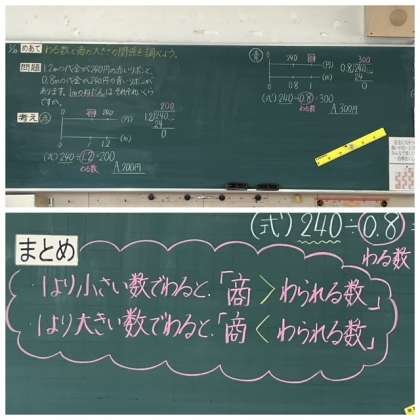 めあて わる数と商の大きさの関係を調べよう。
問題 1.2mの代金が240円の赤いリボンと、
0.8mの代金が240円の青いリボンが
あります。1mのねだんはそれぞれいくら
ですか。
考え 赤
0 240 (円)
0 1 1.2 (m)
200
1.2)240
24
0
(式) 240÷1.2=200
わる数
A.200円
青
0 240 (円)
0 0.8 1 (m)
300
0.8)240
24
0
(式) 240÷0.8=300
わる数
A.300円
(式) 240÷0.8=
わる数
まとめ
1より小さい数でわると、「商>わられる数」
1より大きい数でわると、「商<わられる数」